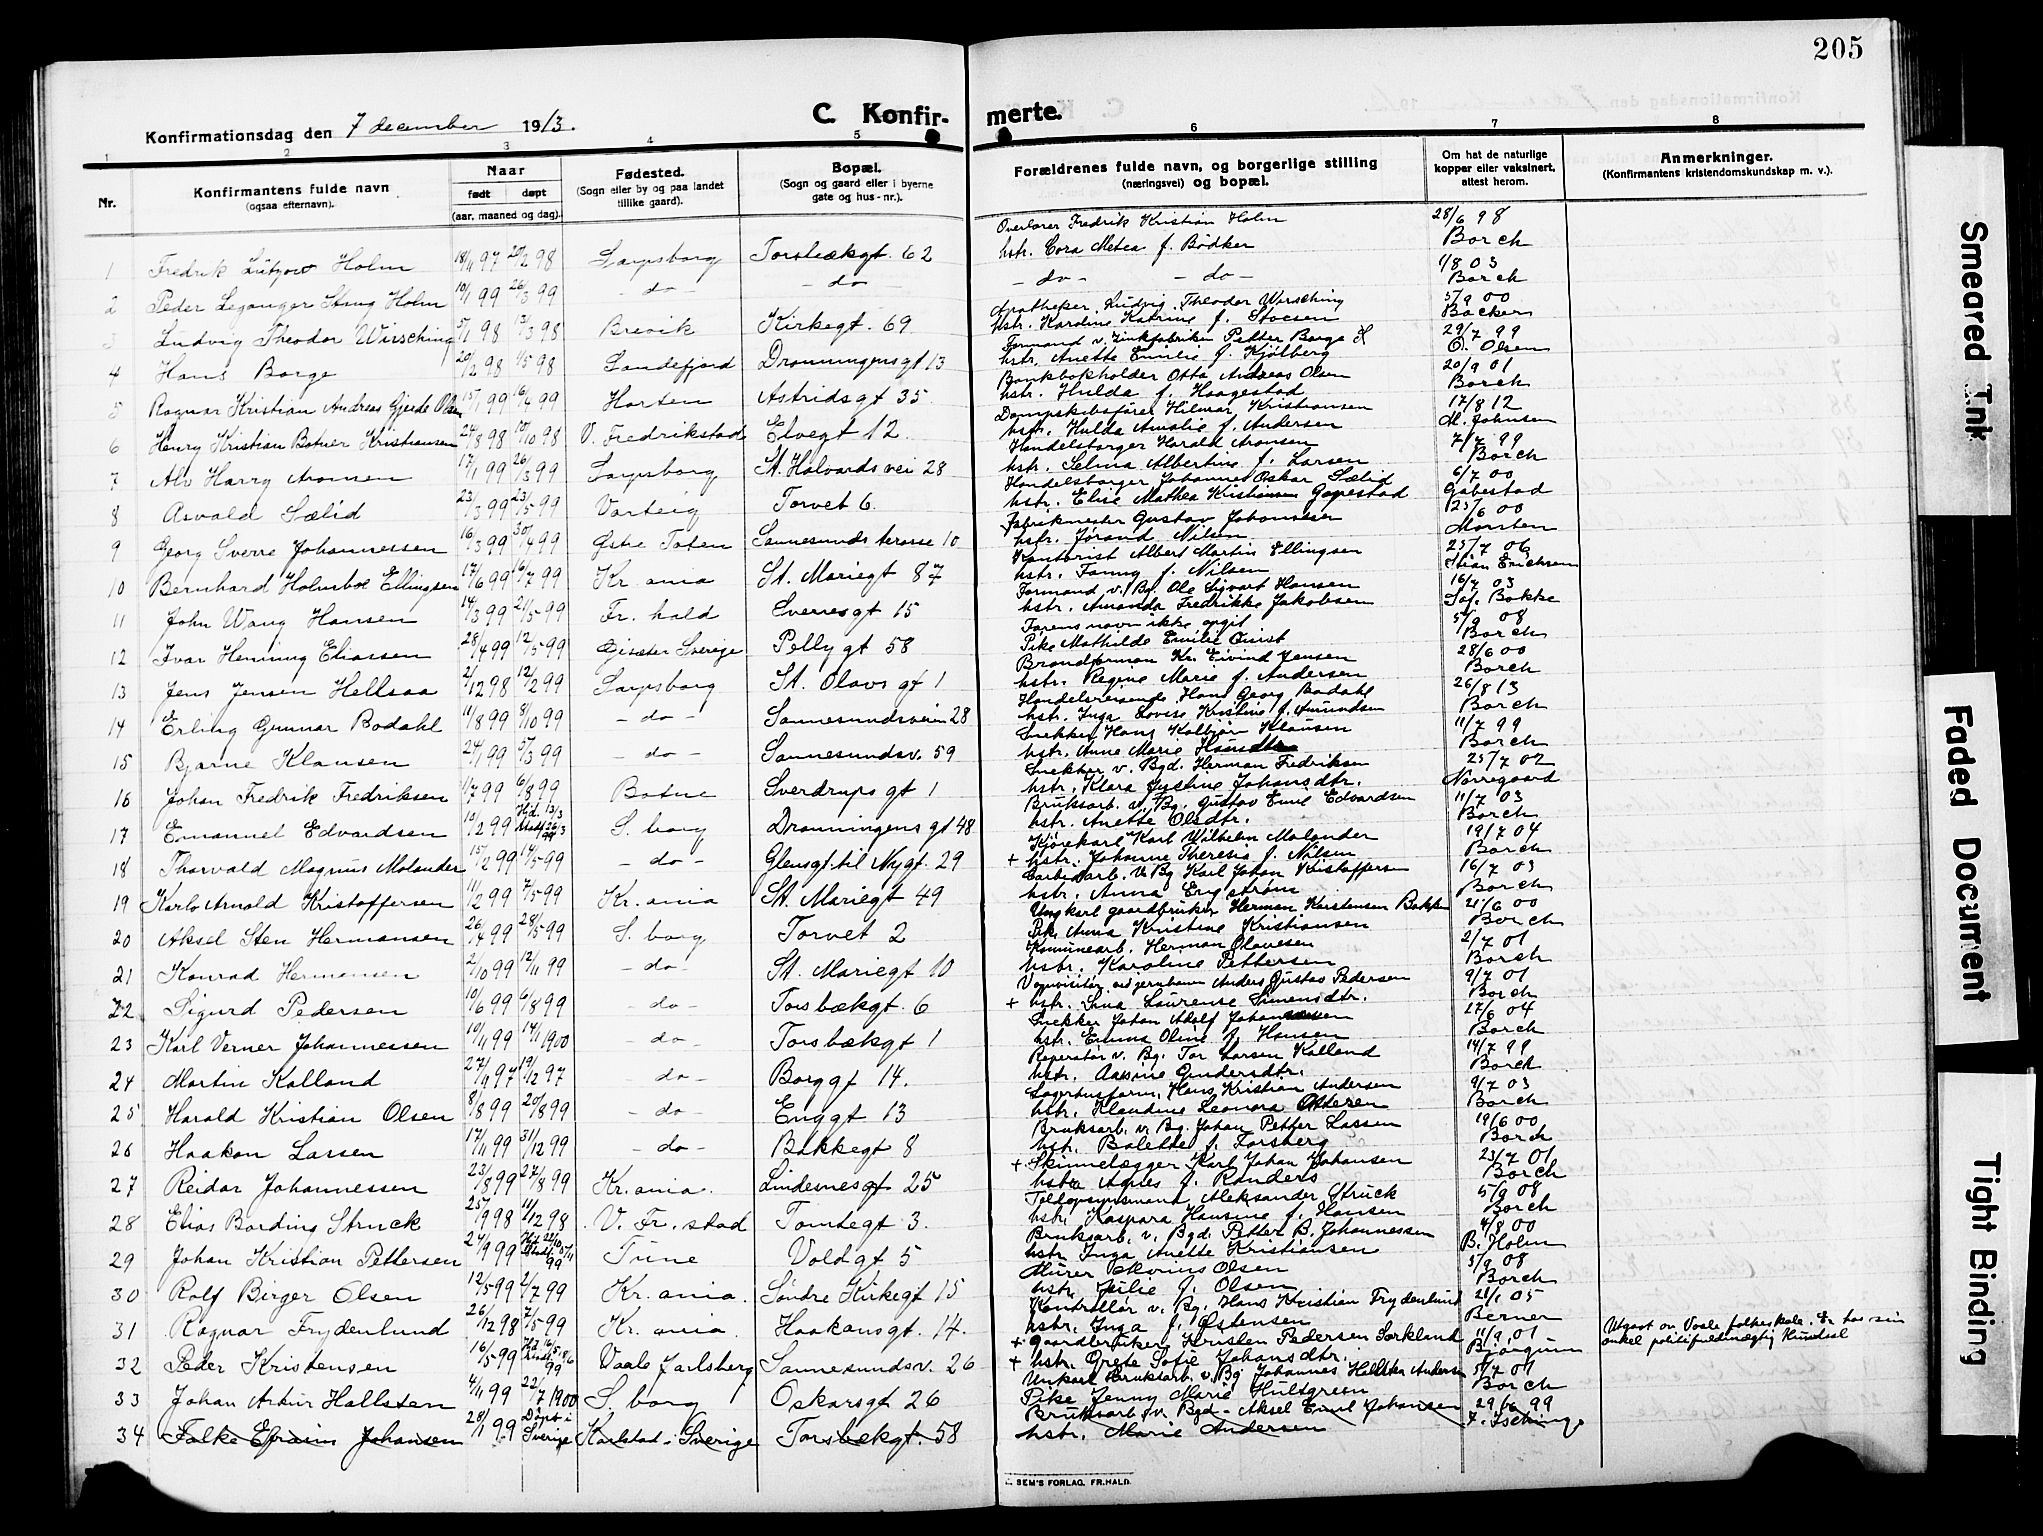 205
Konfirmationsdag den 7 december 1913.
C. Konfirmerte.
1 2 3 4 5 6 7 8
Nr.
Konfirmantens fulde navn
(ogsaa efternavn).
Naar
født døpt
(aar, maaned og dag).
Fødested.
(Sogn eller by og paa landet
tillike gaard).
Bopæl.
(Sogn og gaard eller i byerne
gate og hus-nr.).
Forældrenes fulde navn, og borgerlige stilling
(næringsvei) og bopæl.
Om hat de naturlige
kopper eller vaksinert,
attest herom.
Anmerkninger.
(Konfirmantens kristendomskundskap m. v.).
Fredrik Kristian Holm 28/6 98
1 Fredrik Lützow Holm 18/11 97 20/2 98 Sarpsborg Torsbækgt. 62 hstr. Cora Metea f. Bødker Borch
2 Peder Leganger Holm 10/1 99 26/3 99 - do - - do - do - - do - 1/8 03 Borch
Apotheker Ludvig Theodor Wirsching 5/9 00
3 Ludvig Theodor Wirsching 5/1 98 13/3 98 Brevik Kirkegt. 69 hstr. Karoline Katrine f. Backer
Formand v. Zinkfabriken Petter Borge 29/7 99
4 Hans Borge 20/2 98 98 Sandefjord Dronningensgt 13 hstr. Anette Emilie f. Kjølberg O. Olsen
Bankbokholder Otto Andreas Olsen 20/9 01
5 Ragnar Kristian Andreas Gjerde Olsen 15/1 99 99 Horten Astridsgt 35 hstr. Hulda f. Haagestad Borch
Dampskibsfører Hilmar Kristiansen 17/8 12
6 Henry Kristian Botner Kristiansen 24/8 98 98 V. Fredrikstad Elvegt 12. hstr. Hulda Amalie f. Andersen M. Johnsen
Handelsborger Harald Aronsen 7/7 99
7 Alv Harry Aronsen 17/1 99 26/3 99 Sarpsborg St. Halvardsvei 28 hstr. Selma Albertine f. Larsen Borch
Handelsborger Johannes Oskar Sælid 6/7 00
8 Asvald Sælid 23/3 99 23/5 99 Varteig Torvet 6. hstr. Elise Mathea Kristiansen Gapestad Gabestad
Fabrikmester Gustav Johannesen 6 00
9 Georg Sverre Johannessen 16/3 99 30/4 99 Østre Toten Sannesunds terasse 10 hstr. Jørand Nilsen Morsten
Kontorist Albert Martin Ellingsen 25/7 06
10 Bernhard Holmboe Ellingsen 17/6 99 16/7 99 Kr.ania St. Mariegt 87 hstr. Fanny f. Nilsen Stian Erichsen
Formand v. Bg. Ole Sigvart Hansen 16/7 03
11 John Wang Hansen 14/3 99 21/5 99 Fr. hald Sverresgt 15 hstr. Amanda Fredrikke Jakobsen Bakke
Farens navn ikke opgit 5/9 08
12 Ivar Henning Eliassen 28/4 99 12/5 99 Sverige Pellygt 58 Pike Mathilde Emilie Quist Borch
Brandforman Kr. Eivind Jensen 28/6 00
13 Jens Jensen Hellsaa 2/12 98 12/2 99 Sarpsborg St. Olavs gt 1 hstr. Regine Marie f. Andersen Borch
Handelsreisende Hans Georg Bodahl 26/8 13
14 Erling Gunnar Bodahl 11/8 99 8/10 99 - do - Sannesundsveien 28 hstr. Inga Lovise Kristine f. Amundsen Borch
Snekker Hans Kolbjørn Klausen 11/7 99
15 Bjarne Klausen 24/1 99 5/3 99 - do - Sannesundsv. 59 hstr. Anne Marie Hansdtr. Borch
Snekker v. Bgd. Herman Fredriksen 25/7 02
16 Johan Fredrik Fredriksen 11/7 99 6/8 99 Botne Sverdrups gt 1 hstr. Klara Justine Johansdtr. Norregaard
Bruksarb. v. Bg. Gustav Emil Edvardsen 11/7 03
17 Emanuel Edvardsen 10/2 99 Hjd. 13/3 Stadf. 26/3 99 S. borg Dronningens gt 48 hstr. Anette Olsdtr. Borch
Kjørekarl Karl Wilhelm Molander 19/7 04
18 Thorvald Magnus Molander 15/2 99 14/5 99 - do - Glensgt. til Nygt. 29 + hstr. Johanne Theresia f. Nilsen Borch
Carbidarb. v. Bg. Karl Johan Kristoffersen 16/7 03
19 Karlo Arnold Kristoffersen 11/2 99 7/5 99 Kr.ania St. Mariegt 49 hstr. Anna Engstrøm Borch
Ungkarl gaardbruker Herman Karstensen Bakke 21/6 00
20 Aksel Sten Hermansen 26/4 99 28/5 99 S. borg Torvet 2 Pk. Anna Kristine Kristiansen Borch
Komunearb. Herman Olavesen 2/7 01
21 Konrad Hermansen 2/10 99 12/11 99 - do - St. Mariegt 10 hstr. Karoline Pettersen Borch
Vognvisitør ved jernbanen Anders Gustav Pedersen 9/7 01
22 Sigurd Pedersen 10/6 99 6/8 99 - do - Torsbækgt. 6 + hstr. Lina Laurense Simensdtr. Borch
Snekker Johan Adolf Johannessen 27/6 04
23 Karl Verner Johannessen 10/11 99 14/1 1900 - do - Torsbækgt 1 hstr. Emma Oline f. Hansen Borch
Reparatør v. Bg. Tor Larsen Kalland 14/7 99
24 Martin Kalland 27/9 97 19/12 97 - do - Borggt 14. hstr. Aasine Gundersdtr. Borch
Hans Kristian Andersen 9/7 03
25 Harald Kristian Olsen 8/8 99 20/8 99 - do - Enggt 13 hstr. Klaudine Leonora Borch
Bruksarb. v. Bg. Johan Petter Lassen 19/6 00
26 Haakon Lassen 17/11 99 31/12 99 - do - Bakkegt 8 hstr. Bolette f. Forsberg Borch
+ Skinnelægger Karl Johan Johansen 23/7 01
27 Reidar Johannessen 23/8 99 27/8 99 Kr.ania. Lindesnesgt 25 hstr. Agnes f. Randers Borch
Toldopsynsmand Aleksander Struck 5/9 08
28 Elias Bording Struck 25/9 98 11/12 98 V. Fr. stad Tomtegt 3. hstr. Kaspara Hansine f. Hansen Borch
Bruksarb. v. Bgd. Petter B. Johannessen 4/8 00
29 Johan Kristian Pettersen 24/9 99 Tune Voldgt 5 hstr. Inga Anette Kristiansen B. Holm
Murer Olsen 5/9 08
30 Rolf Birger Olsen 12/5 99 2/7 99 Kr.ania. Søndre Kirkegt 15 hstr. Julie f. Olsen Borch
Kontrollør v. Bg. Hans Kristian Frydenlund 05
31 Ragnar Frydenlund 26/12 98 7/5 99 Kr.ania. Haakonsgt. 14. hstr. Inga f. Østensen Berner
+ Gaardbruker Kristen Pedersen 11/9 01 Utgaat av Vaale folkeskole. Er hos sin
32 Peder Kristensen 16/5 99 Vaale Jarlsberg Sannesundsv. 26 + hstr. Grete Sofie Johansdtr. onkel politifuldmægtig
Bruksarb. v. Bg. Johannes Andersen 5/7 01
33 Johan Artur Hallsten 4/11 99 22/7 1900 S. borg Oskarsgt 26 Pike Jenny Marie Hultgreen Borch
Bruksarb. v. Bgd. Aksel Emil Johansen 29/6 99
34 Falke Efraim Johansen 20/1 99 Døpt i Sverige Karlstad i Sverige Torsbækgt. 58 hstr. Marie Andersen
SEM'S FORLAG, FR.HALD.
Smeared Ink
Faded Document
Tight Binding